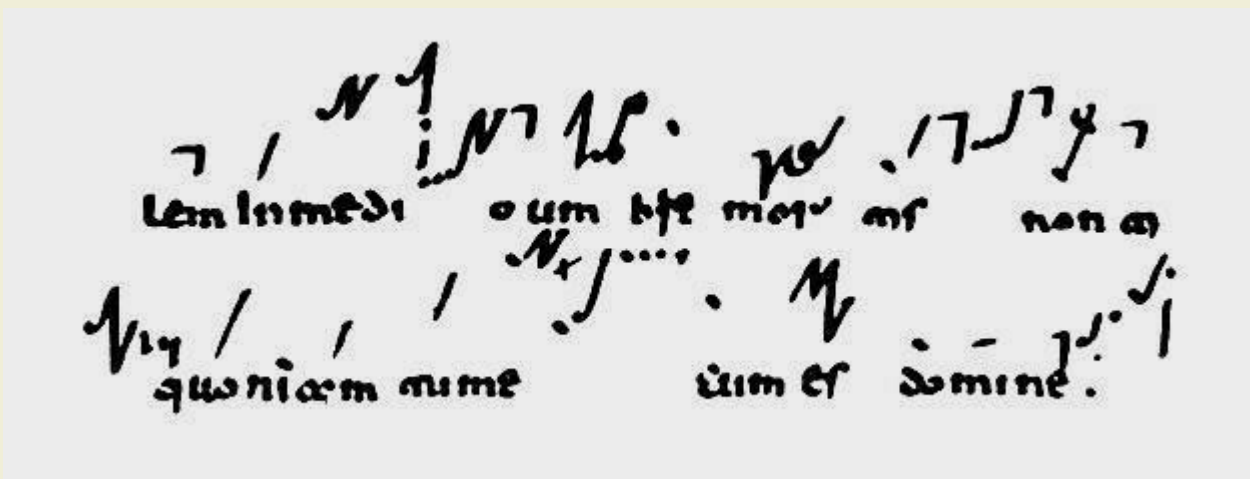 lem In medi o um bre mor tis non ti
quoniam tu me cum es domine.